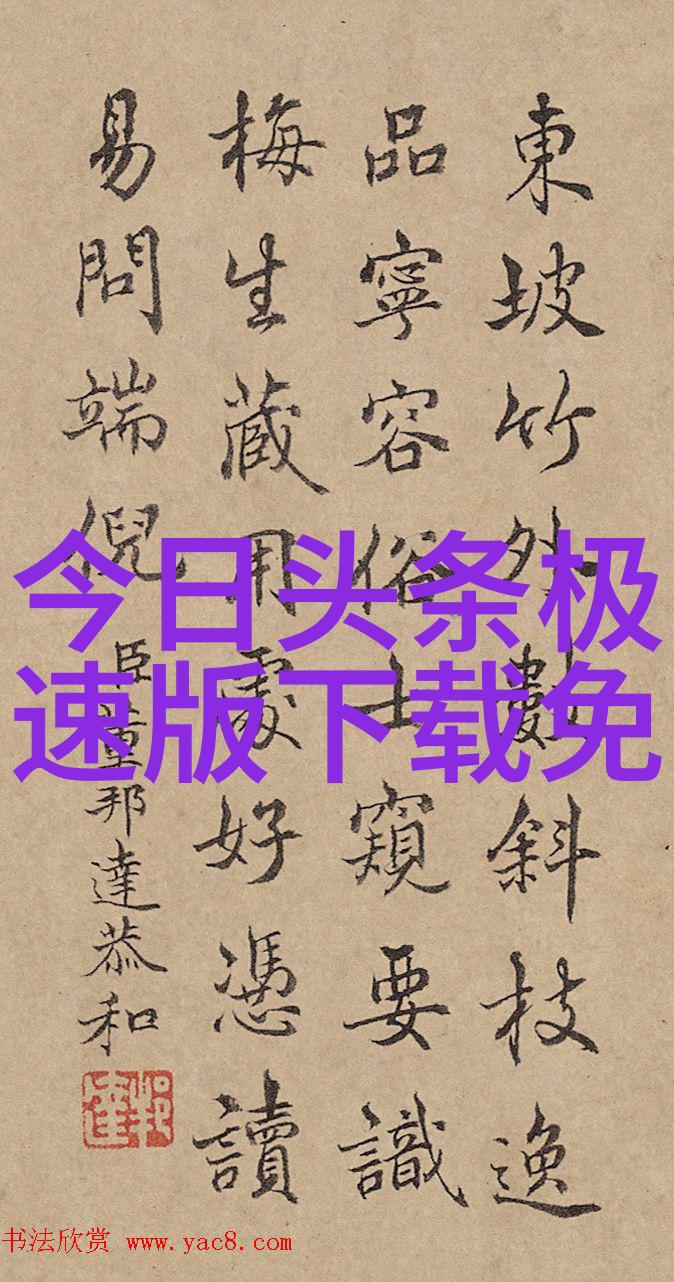 東坡竹外數斜枝逸
品寧容俗士窺要識
梅生蔵用處好憑讀
易問端倪
臣董邦達恭和
今日头条极
速版下载免
书法欣赏 www.yac8.com